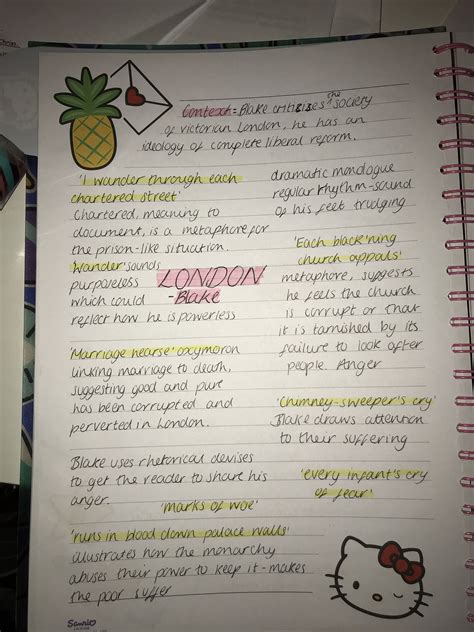 Context = Blake criticises the society
of victorian London, he has an
ideology of complete liberal reform.
'I wander through each
chartered street'
Chartered, meaning to
document, is a metaphore for
the prison-like situation.
Wander' sounds
purposeless
which could
reflect how he is powerless
dramatic monologue
regular rhythm-sound
of his feet trudging
LONDON
-Blake
'Each black'ning
church appals'
metaphore, suggests
he feels the church
is corrupt or that
it is tarnished by its
failure to look after
people. Anger
'Marriage hearse' oxymoron
linking marriage to death,
suggesting good and pure
has been corrupted and
perverted in London.
'Chimney-sweeper's cry'
Blake draws attention
to their suffering
Blake uses rhetorical devises
to get the reader to share his
anger.
'every infant's cry
of fear'
'marks of woe'
'runs in blood down palace walls'
illustrates how the monarchy
abuses their power to keep it - makes
the poor suffer
Sanrio